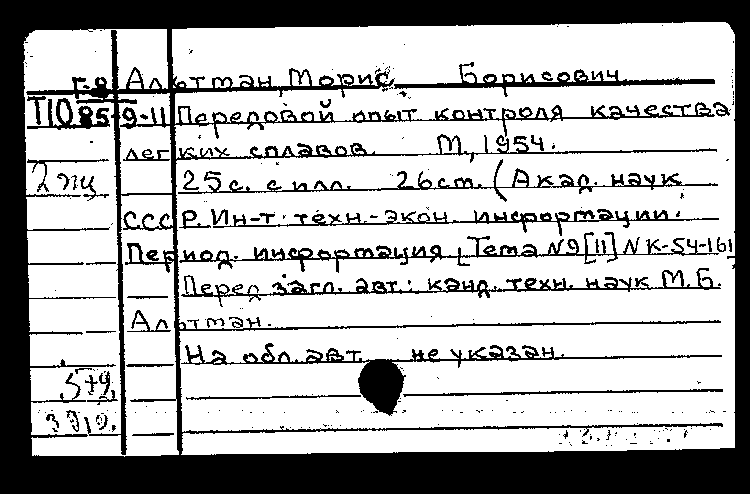 Г-8 Альтман, Морис Борисович
Т10 85-9-11 Передовой опыт контроля качества
легких сплавов. М., 1954.
2 пц 25с. с илл. 26см. (Акад. наук
СССР. Ин-т. техн.-экон. информации.
Период. информация [Тема N9[11] N К-54-161
Перед загл. авт.: канд. техн. наук М.Б.
Альтман.
На обл. авт. не указан.